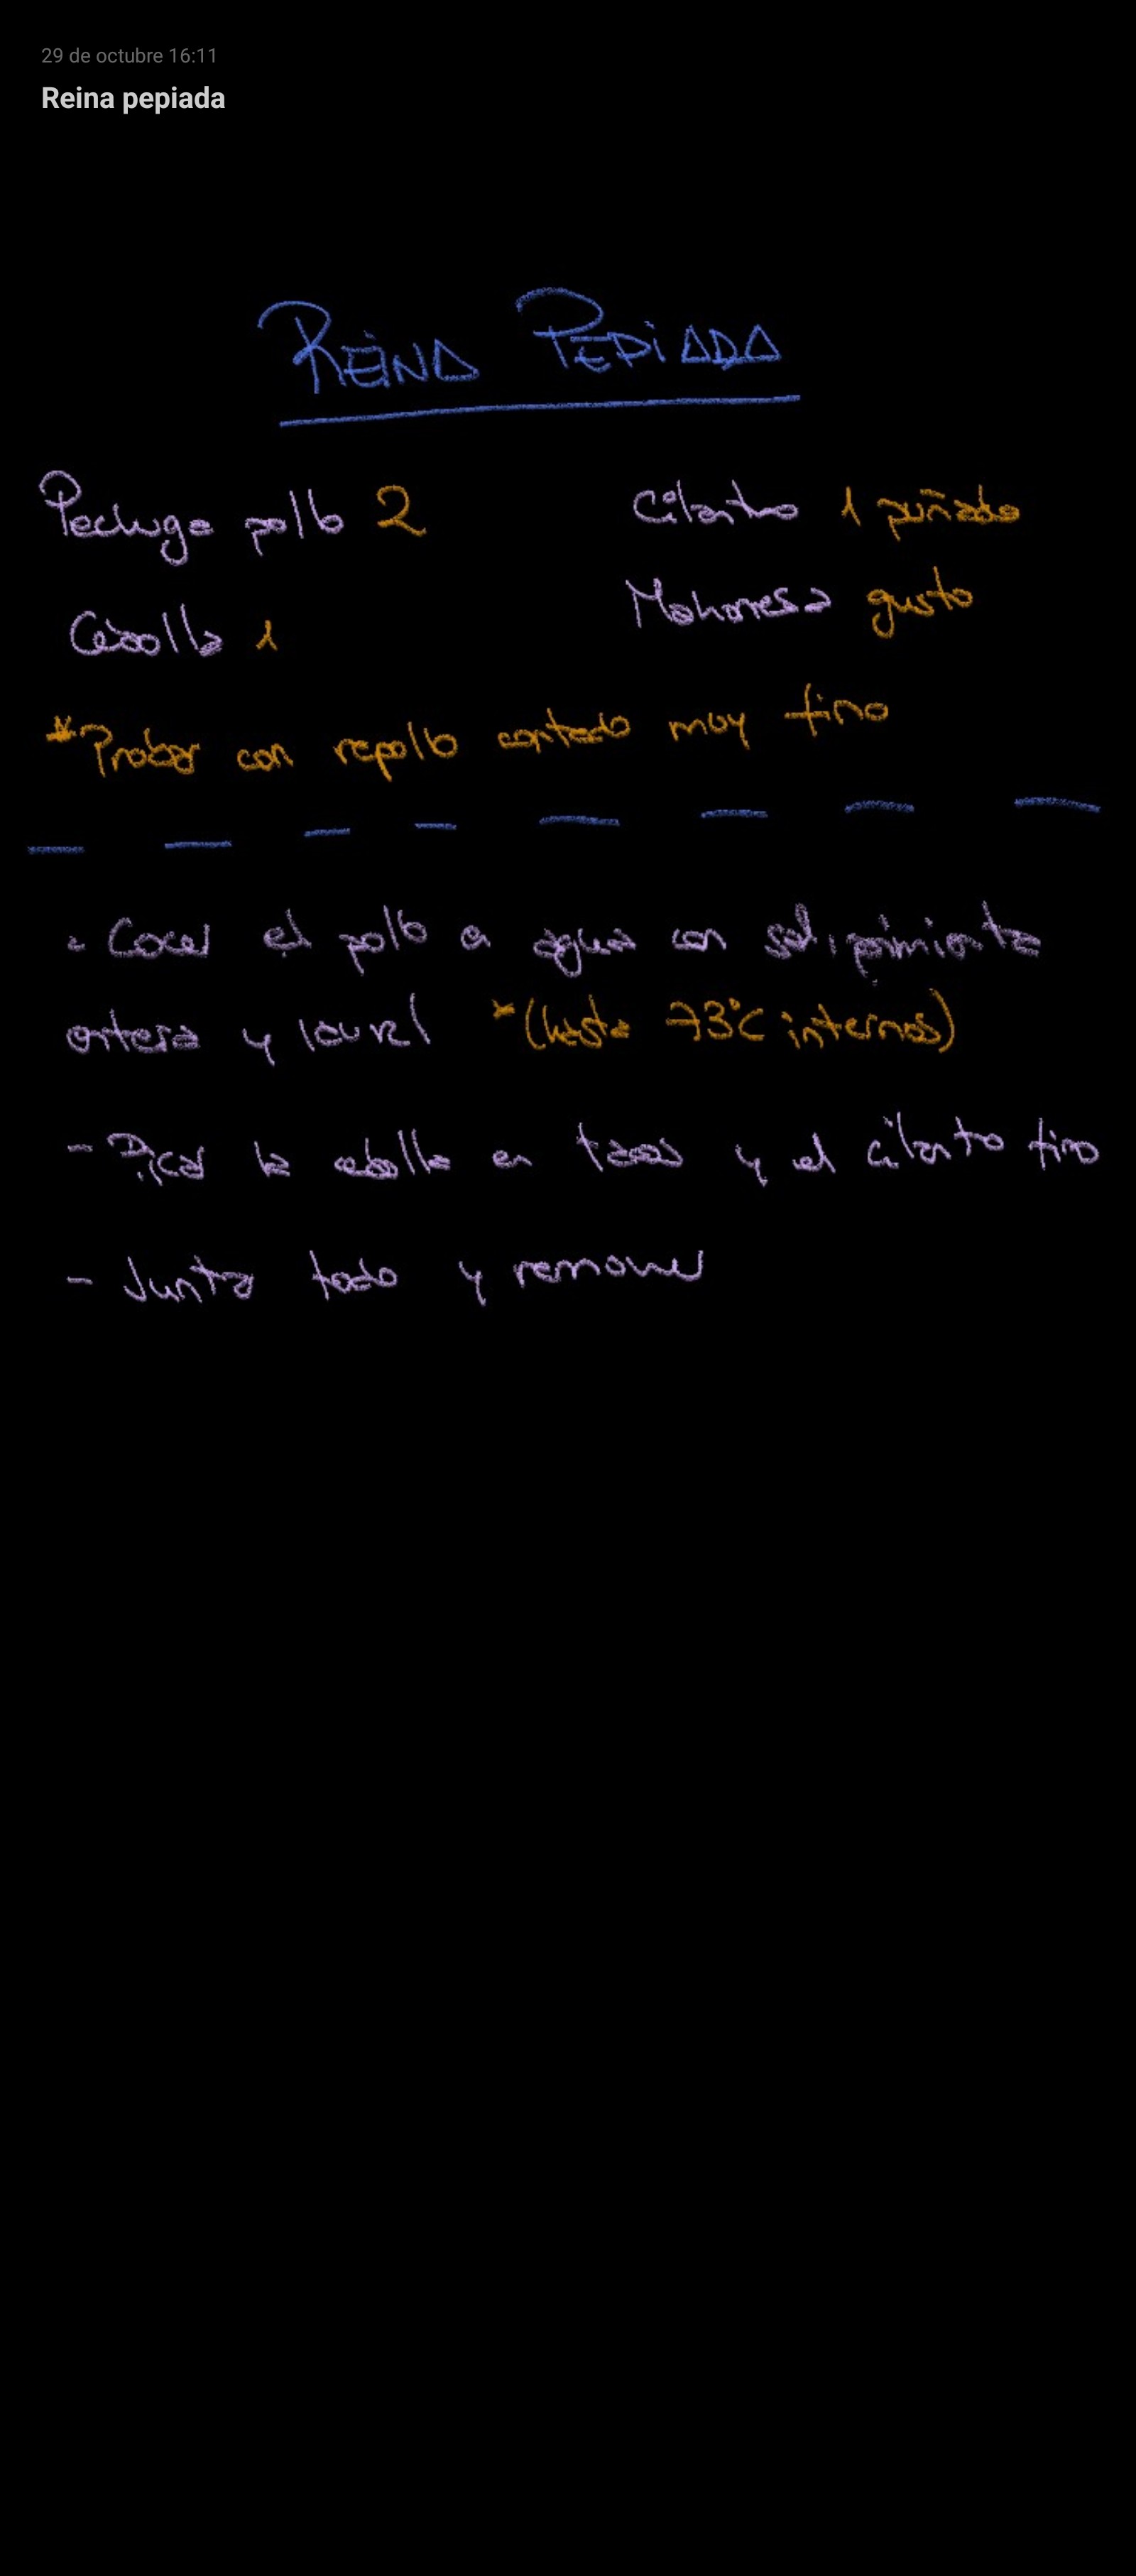 29 de octubre 16:11
Reina pepiada
REINA PEPIADA
Pechuga pollo 2
Cilantro 1 puñado
Cebolla 1
Mahonesa gusto
*Probar con repollo cortado muy fino
- Cocer el pollo en agua con sal, pimienta
entera y laurel *(hasta 73°C internos)
- Picar la cebolla en tacos y el cilantro fino
- Juntar todo y remover